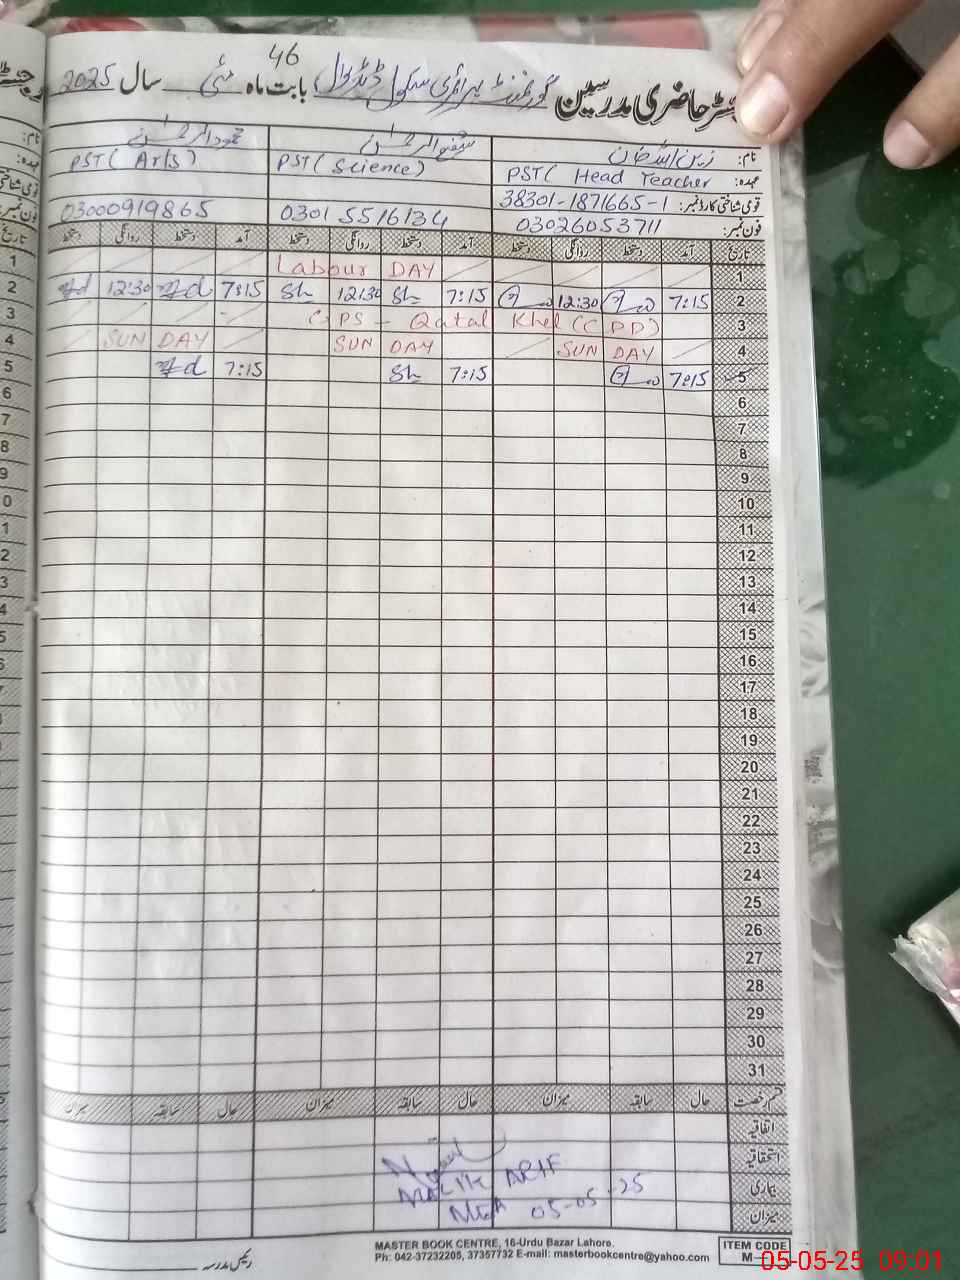 46
رجسٹر حاضری مدرسین گورنمنٹ پرائمری سکول بابت ماہ مئی سال 2025
نام:
عہدہ: PST( Head Teacher PST( Science) PST( Arts)
قومی شناختی کارڈ نمبر: 38301-1871665-1
فون نمبر: 03026053711 0301 5516134 03000919865
تاریخ آمد دستخط روانگی دستخط آمد دستخط روانگی دستخط آمد دستخط روانگی دستخط
1 Labour DAY
2 7:15 12:30 7:15 Sh 12:30 Sh 7:15 12:30
3 GPS - Qatal Khel (CPD)
4 SUN DAY SUN DAY SUN DAY
5 7:15 7:15 Sh 7:15
6
7
8
9
10
11
12
13
14
15
16
17
18
19
20
21
22
23
24
25
26
27
28
29
30
31
قسم رخصت حال سابقہ میزان حال سابقہ میزان حال سابقہ میزان
اتفاقیہ
استحقاقیہ
بیماری
میزان
MALIK ARIF
MEA 05-05-25
رئیس مدرسہ
MASTER BOOK CENTRE, 16-Urdu Bazar Lahore.
Ph: 042-37232205, 37357732 E-mail: masterbookcentre@yahoo.com
ITEM CODE
M
05-05-25 09:01